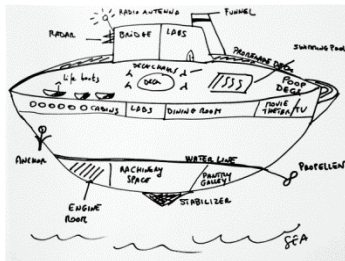 RADIO ANTENNA
FUNNEL
RADAR
BRIDGE
LABS
PROMENADE DECK
SWIMMING POOL
life boats
DECK CHAIRS
DECK
POOP
DECK
CABINS
LABS
DINING ROOM
MOVIE
THEATER/TV
ANCHOR
WATER LINE
PROPELLER
MACHINERY
SPACE
PANTRY
GALLEY
ENGINE
ROOM
STABILIZER
SEA